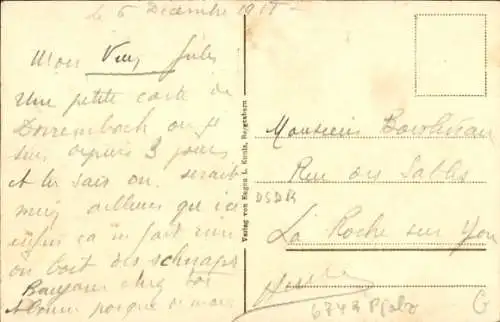 le 6 Décembre 191
Mon Vieux Jules
Une petite carte de
Dorrembach ou je
suis depuis 3 jours
et tu sais on serait
mieux ailleurs qu'ici
enfin ça n fait rien
on boit des schnaps
Bonjour chez toi
Verlag von Eugen L. Kunk, Bergzabern
Monsieur
Rue des Sables
DSDB
La Roche sur Yon
6748 Pfalz